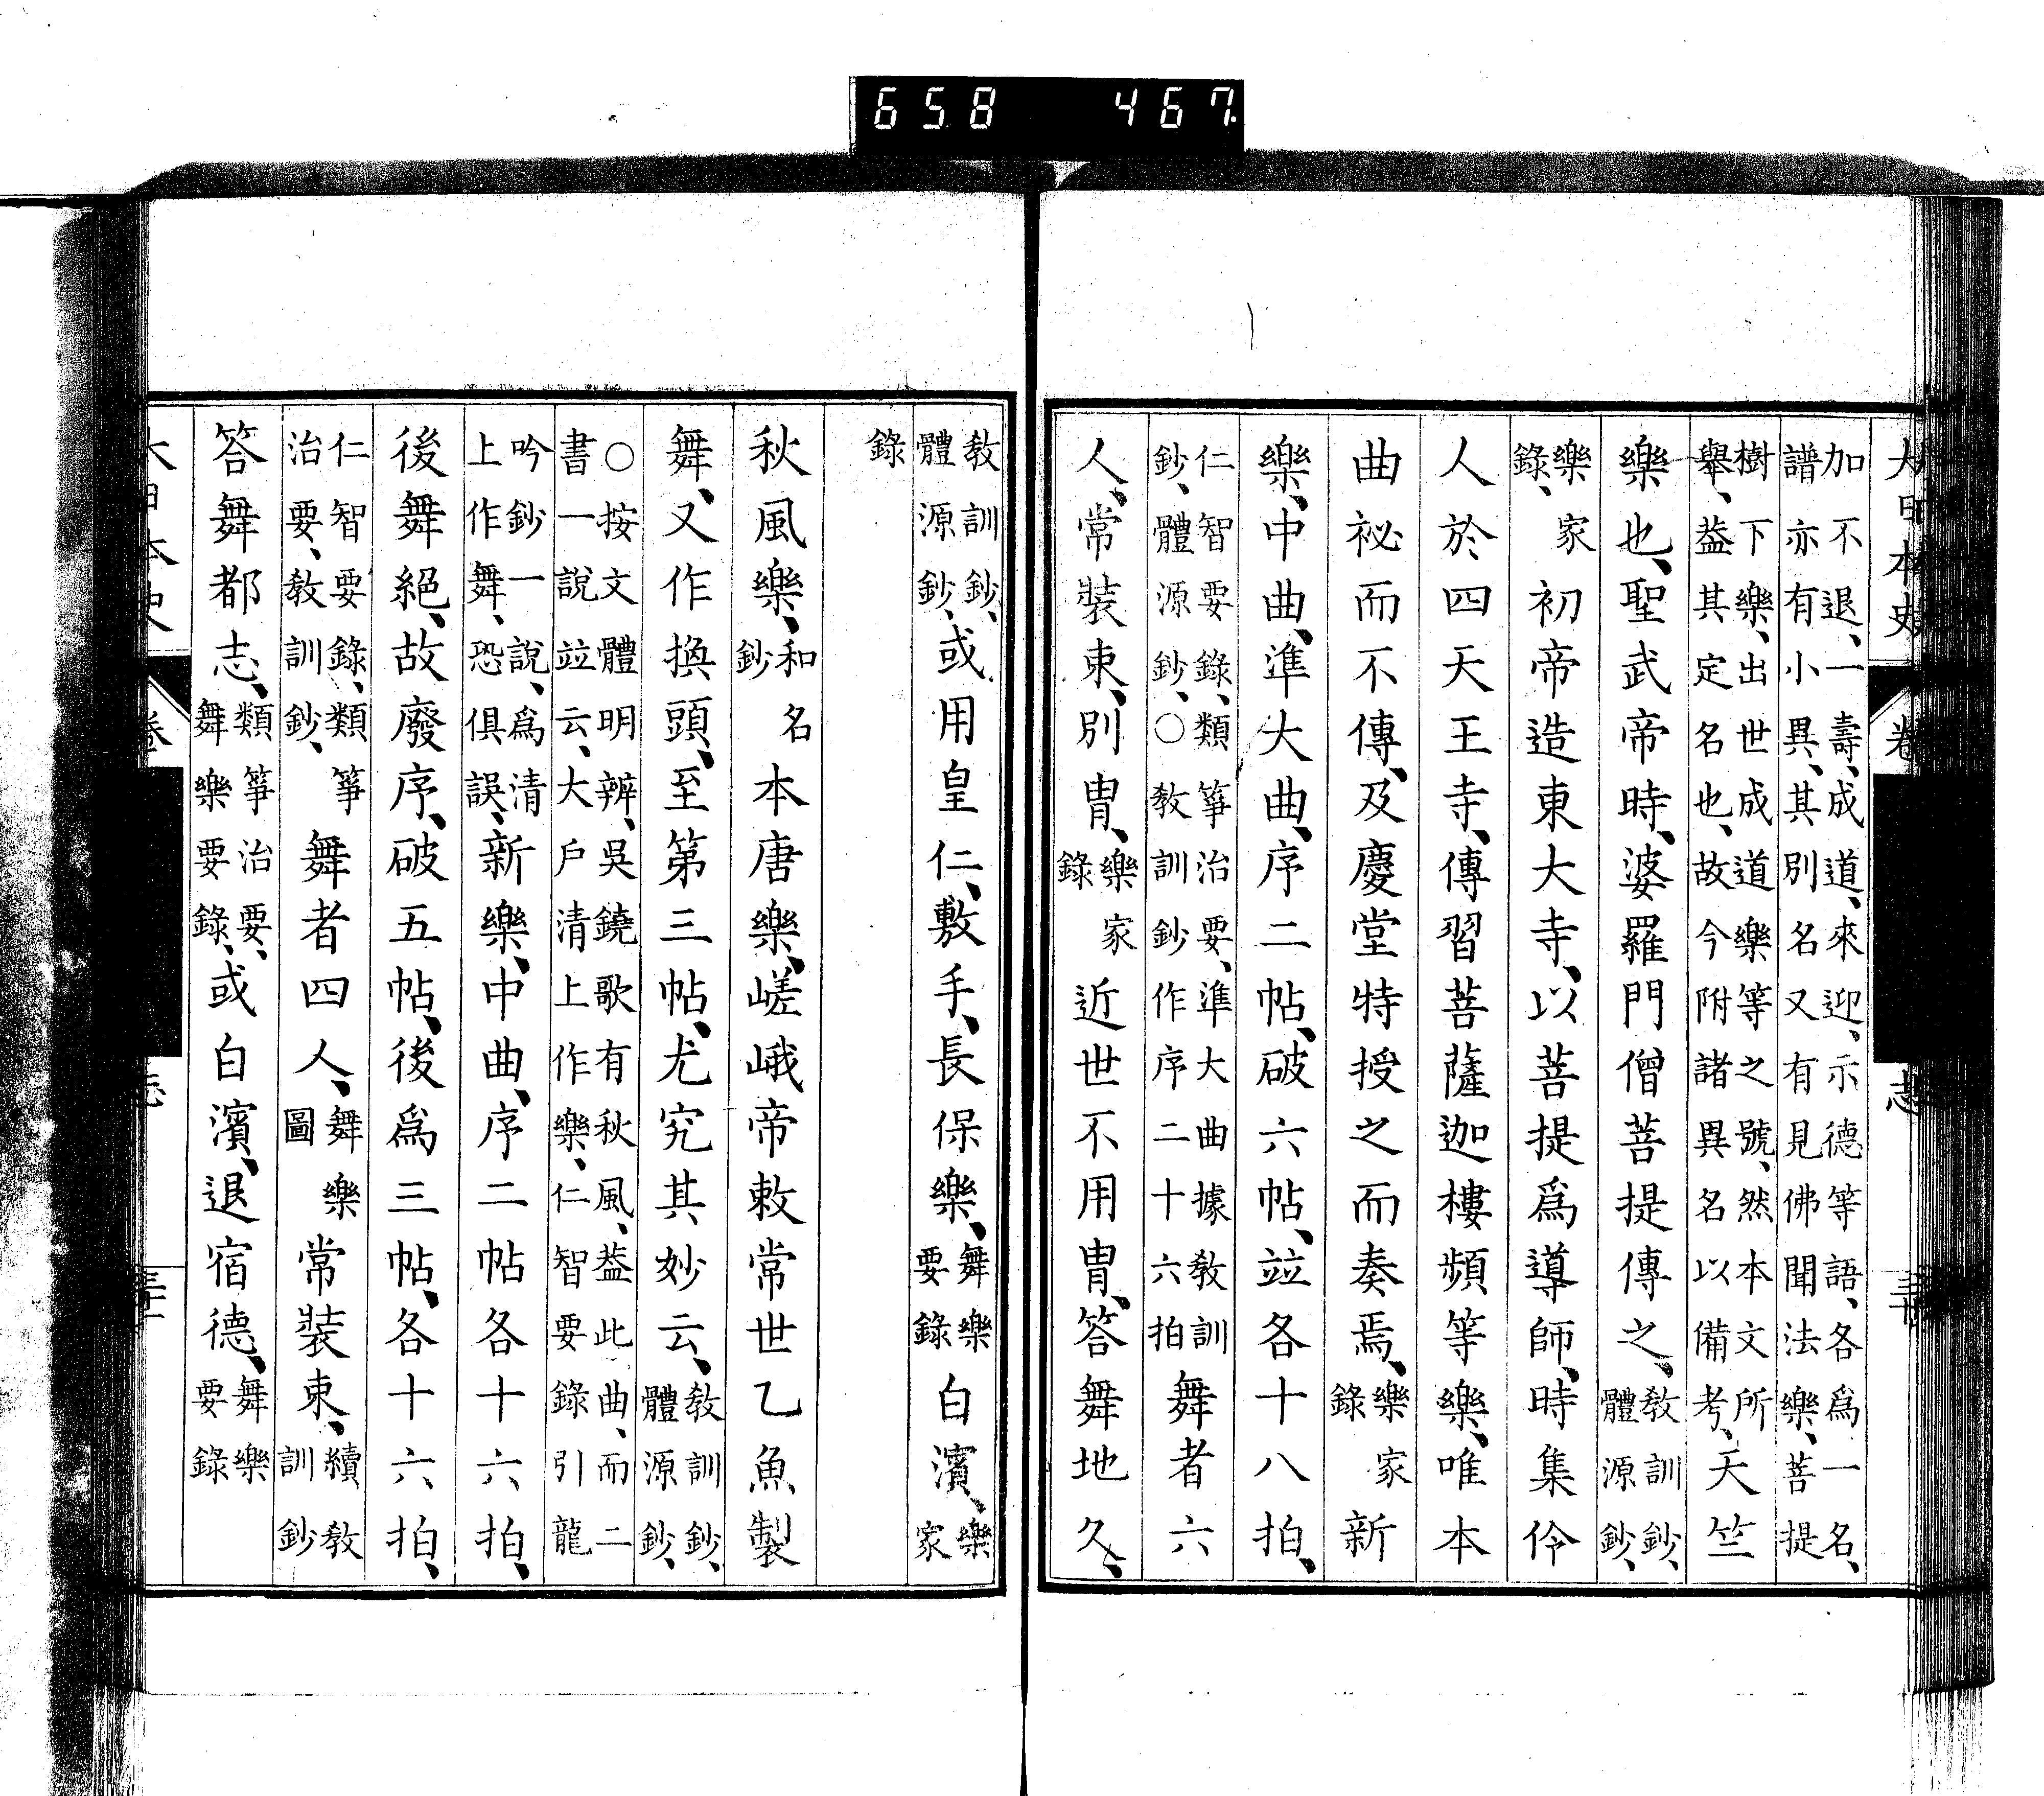 658 467
大日本史 卷 志
加不退、一壽、成道、來迎、示德等語、各爲一名、
譜亦有小異、其別名又有見佛聞法樂、菩提
樹下樂、出世成道樂等之號、然本文所
舉、葢其定名也、故今附諸異名以備考、天竺
樂也、聖武帝時、婆羅門僧菩提傳之、教訓鈔、體源鈔、
樂家錄、初帝造東大寺、以菩提爲導師、時集伶
人於四天王寺、傳習菩薩迦樓頻等樂、唯本
曲祕而不傳、及慶堂特授之而奏焉、樂家錄新
樂、中曲、準大曲、序二帖、破六帖、竝各十八拍、
仁智要錄、類箏治要、準大曲據教訓鈔、體源鈔、○教訓鈔作序二十六拍舞者六
人、常裝束、別冑、樂家錄近世不用冑、答舞地久、
教訓鈔、體源鈔、或用皇仁、敷手、長保樂、舞樂要錄白濱、樂家
錄
秋風樂、和名鈔本唐樂、嵯峨帝敕常世乙魚製
舞、又作換頭、至第三帖、尤究其妙云、教訓鈔、體源鈔、
○按文體明辨、吳鐃歌有秋風、葢此曲、而二書一說竝云、大戶清上作樂、仁智要錄引龍
吟鈔一說、爲清上作舞、恐俱誤、新樂、中曲、序二帖各十六拍、
後舞絕、故廢序、破五帖、後爲三帖、各十六拍、
仁智要錄、類箏治要、教訓鈔、舞者四人、舞樂圖常裝束、續教訓鈔
答舞都志、類箏治要、舞樂要錄、或白濱、退宿德、舞樂要錄
大日本史 卷 志